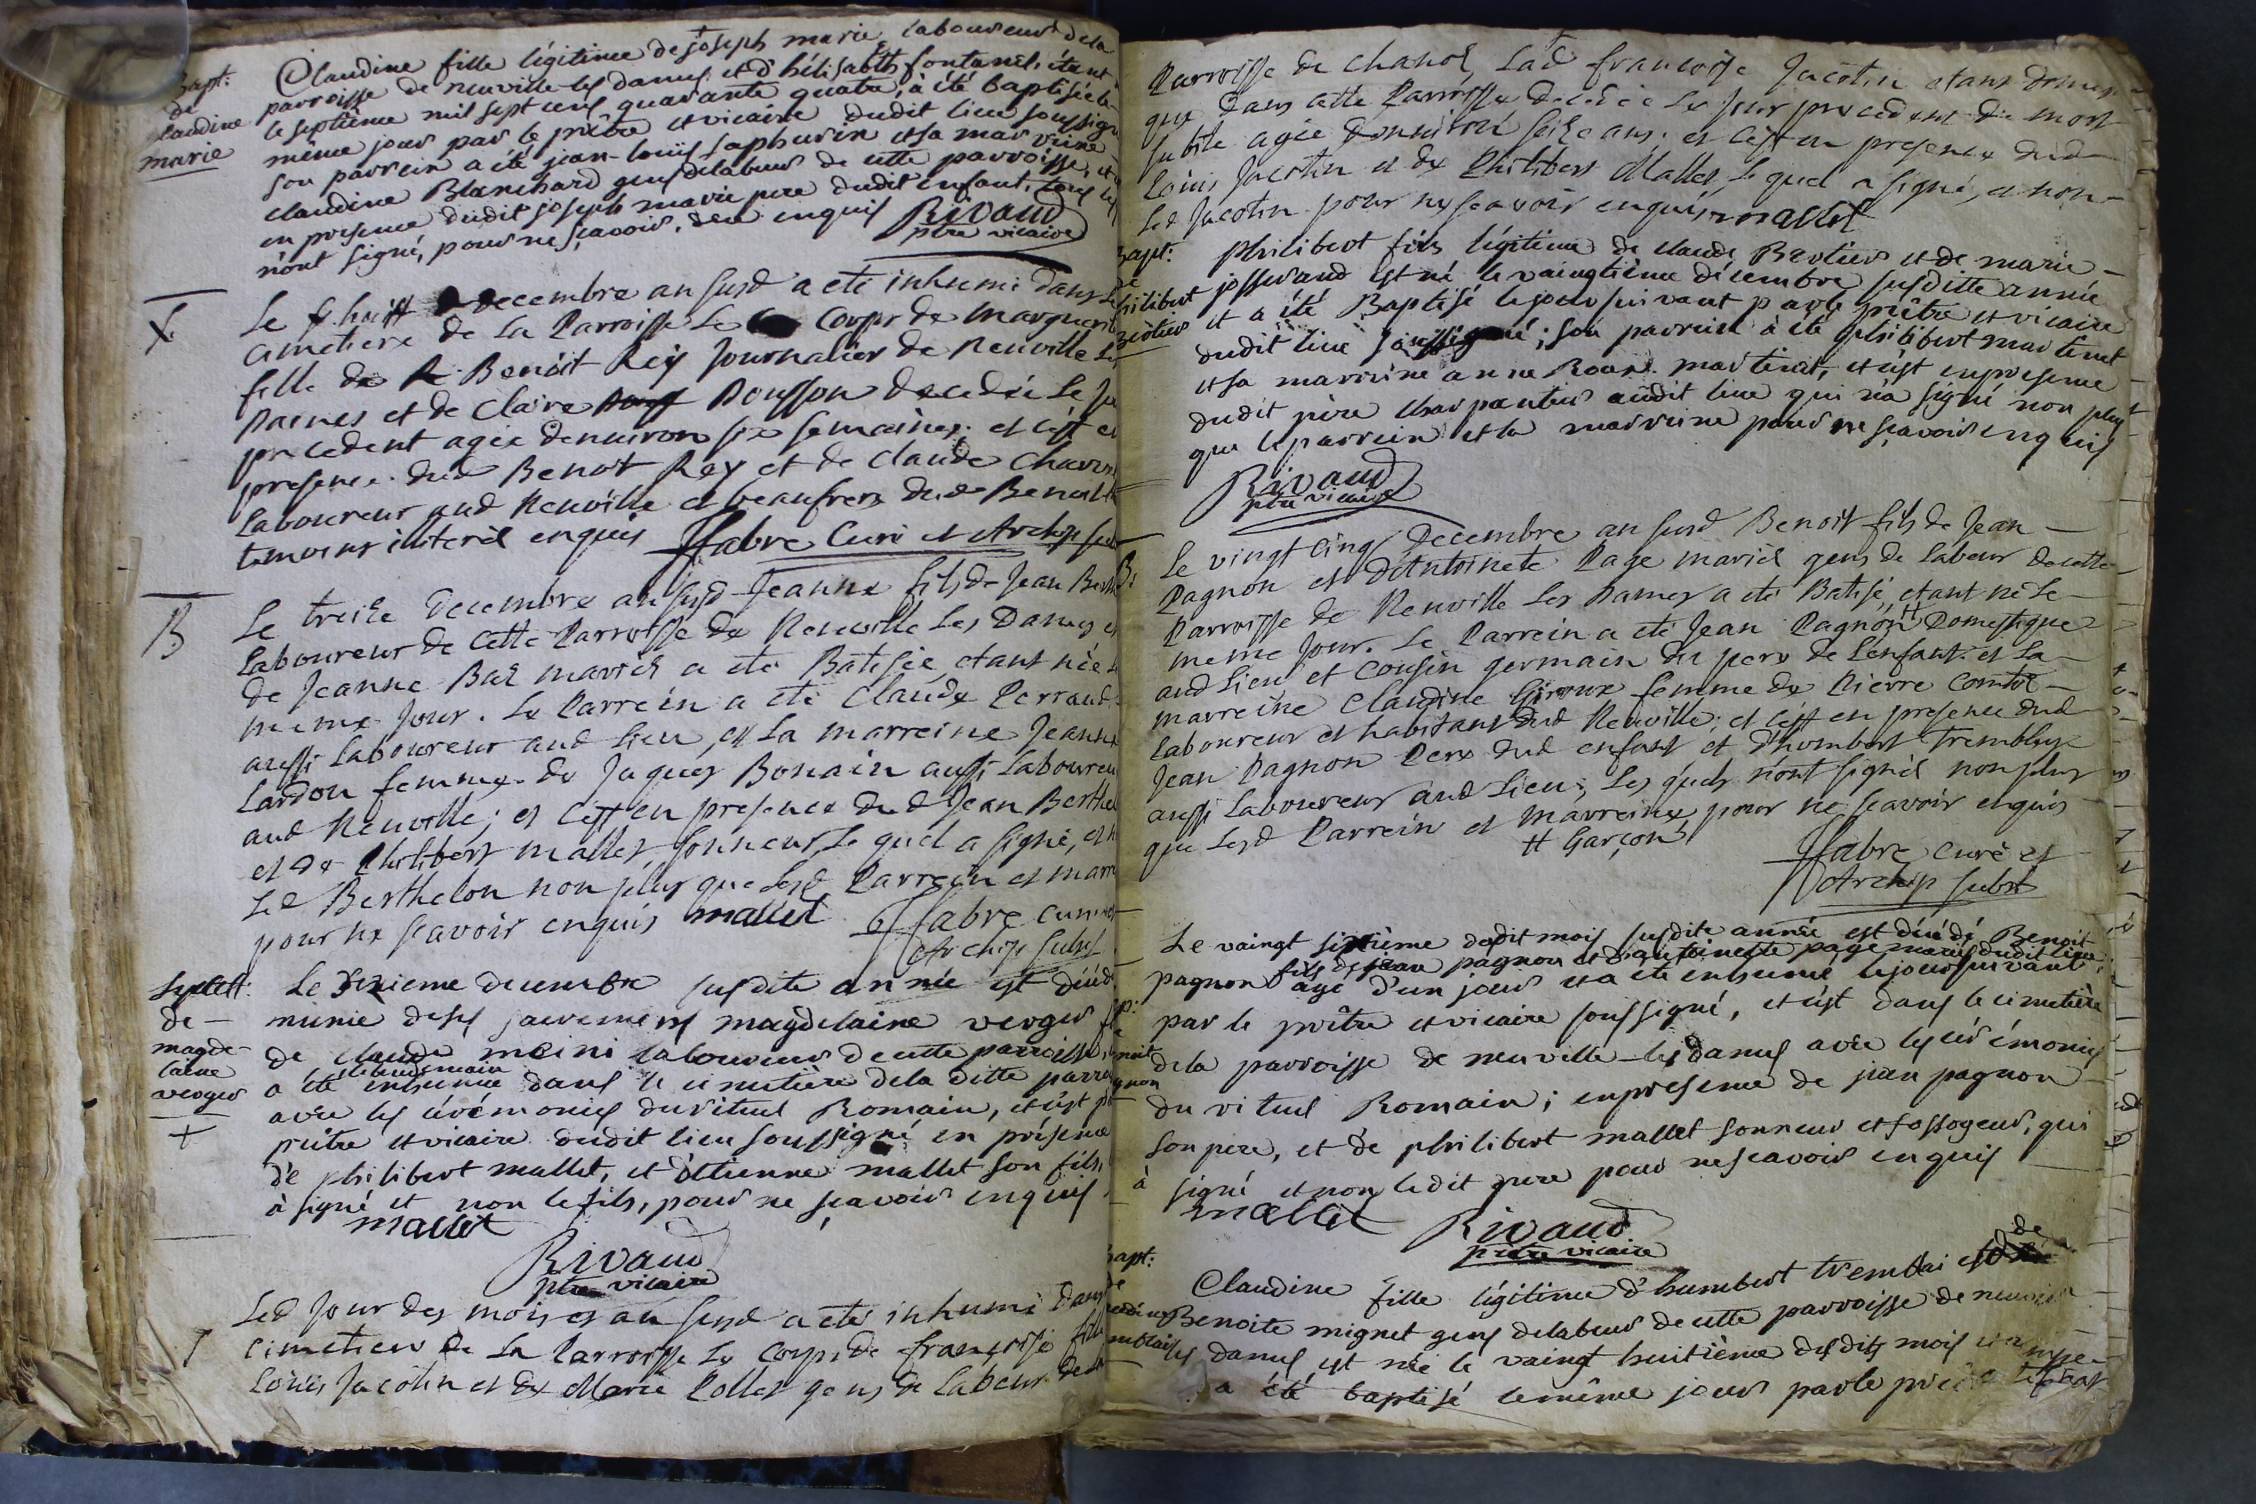 Bapt:
de
claudine
marie
Claudine fille légitime de joseph marie laboureur dela
parroisse de neuville les dames et d'hélisabeth fontanel, étant
le septième mil sept cens quarante quatre, à été baptisée le
même jour par le prêtre et vicaire dudit lieu soussigné
son parrein a été jean-louïs saphurin et sa marreine
claudine Blanchard gens delabeur de cette parroisse, et
en presence dudit joseph marie pere dudit enfant, tous
n'ont signé, pour ne sçavoir, de ce enquis Rivaud
ptre vicaire
Le huit decembre an susd a eté inhumé dans le
cimetiere de la Parroisse Le Corps de Marguerite
fille de Benoit Rey Journalier de Neuville Les
Dames et de Claire Pousson decedée Le jour
precedent agée denuiron six semaines; et c'est en
presence dud Benoit Rey et de Claude Chavins
Laboureur aud Neuville et beaufrere dud Benoit
temoins illiterés enquis ffabre Curé et Archip subst
B
Le treize decembre an susd Jeanne fils de Jean Berthelon
Laboureur de cette Parroisse de Neuville Les Dames et
de Jeanne Bal mariés a eté Batisée etant née le
meme jour. Le Parrein a eté Claude Perraud
aussi Laboureur aud Lieu, et La marreine Jeanne
Lardon femme de Jaques Bonain aussi Laboureur
aud Neuville; et c'est en presence dud Jean Berthelon
et de Philibert mallet, sonneur, Le quel a signé, et non
Led Berthelon non plus que Lesd Parrein et marreine
pour ne scavoir enquis mallet ffabre curé et
Archip subst
Sepult:
de
magde-
laine
verger
Le dixieme decembre susdite année est décédée
munie deses sacremens magdelaine verger
de claude moini laboureur decette parroisse, et
a été le lendemain inhumée dans le cimetière dela ditte parroisse
avec les cérémonies durituel Romain, et c'est par
prêtre et vicaire dudit lieu soussigné en présence
de philibert mallet, et d'étienne mallet son fils,
à signé et non le fils, pour ne sçavoir enquis
mallet
Rivaud
ptre vicaire
Led jour des mois et an susd a eté inhumé dans
cimetiere de La Parroisse Le Corps de françoise fille
Loüis Jacotin et de Marie Pollet gens de Labeur de la
Parroisse de Chanoz Lad francoise Jacotin etant domesti
que dans cette Parroisse decedée Le jour precedent de mort
subite agée denuiron seize ans; et c'est en presence dud
Loüis Jacotin et de Philibert Mallet, Le quel a signé, et non
Led Jacotin pour ne scavoir enquis mallet
Bapt:
de
philibert
Philibert fils légitime de claude Bertier et de marie
josserand est né le vaingtième décembre susditte année
et a été Baptisé le jour suivant par le prêtre et vicaire
dudit lieu soussigné; son parrein à été philibert martinet
et sa marreine anne Roux martinet, et c'est enpresence
dudit père charpentier audit lieu qui n'a signé non plus
que le parrein et la marreine pour ne sçavoir enquis
Rivaud
ptre vicaire
B:
Le vingt cinq Decembre an susd Benoit fils de Jean
Pagnon et d'Antoinete Page mariés gens de Labeur decette
Parroisse de Neuville Les Dames a eté Batisé, etant né Le
meme jour. Le Parrein a eté Jean Pagnon Domestique
aud Lieu et cousin germain du pere de L'enfant et La
marreine Claudine Giroux femme de Pierre Comtet
Laboureur et habitant dud Neuville; et c'est en presence dud
Jean Pagnon Pere dud enfant et d'humbert Tremblay
aussi Laboureur aud Lieu; Les quels n'ont signés non plus
que Lesd Parrein et marreine pour ne scavoir enquis
Garçon
ffabre curé et
Archip subst
Le vaingt sixième dudit mois susdite année est décédé Benoit
fils de jean pagnon et d'antoinette page mariés dudit lieu
pagnon agé d'un jour et a été enhumé le jour suivant
par le prêtre et vicaire soussigné, et c'est dans le cimetière
dela parroisse de neuville-les dames avec les cérémonies
du rituel Romain; enpresence de jean pagnon
son pere, et de philibert mallet sonneur et fossoyeur, qui
à signé et non ledit pere pour nescavoir enquis
mallet
Rivaud
prêtre vicaire
Bapt:
de
Claudine fille légitime d'humbert tremblai et de
Benoite mignet gens delabeur decette parroisse de neuville
les dames est née le vaingt huitième desdits mois et
a été baptisé le même jour par le prêtre